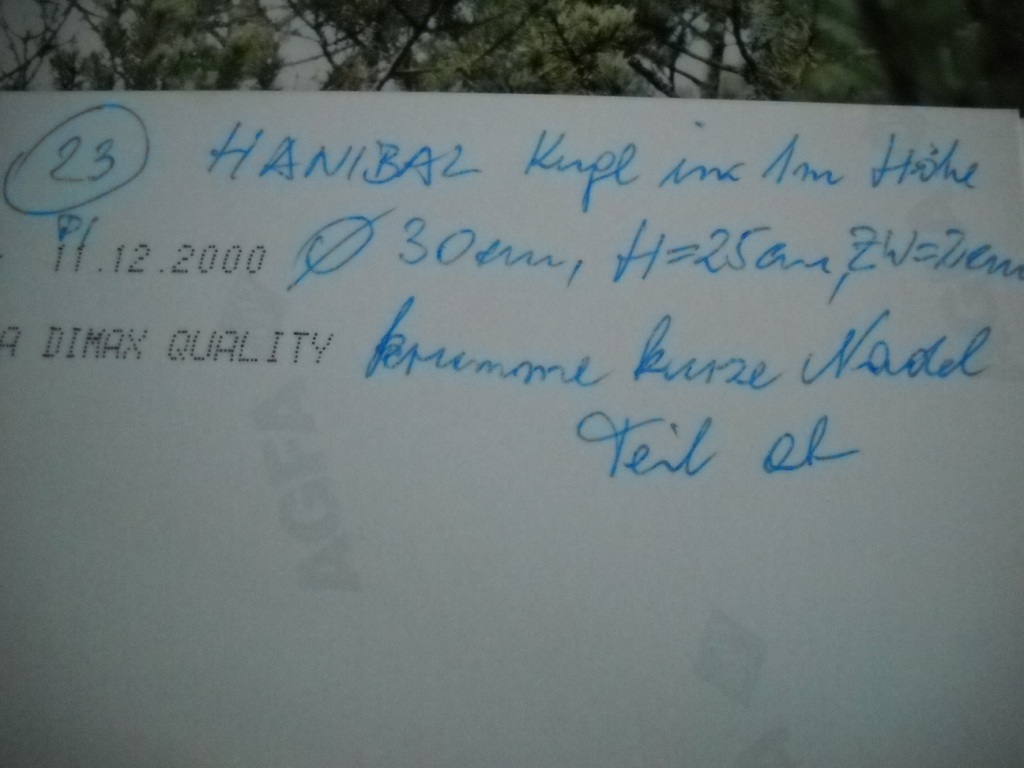 23 HANIBAL Kugl in 1m Höhe
PI
11.12.2000 Ø 30cm, H=25cm, ZW=2cm
A DIMAX QUALITY krumme kurze Nadel
Teil ok
AGFA